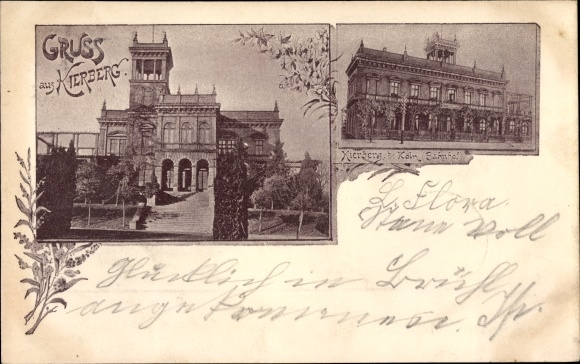 GRUSS
aus KIERBERG.
Kierberg b. Köln, Bahnhof
L. Flora.
Voll
Glücklich in Brühl
angekommen.